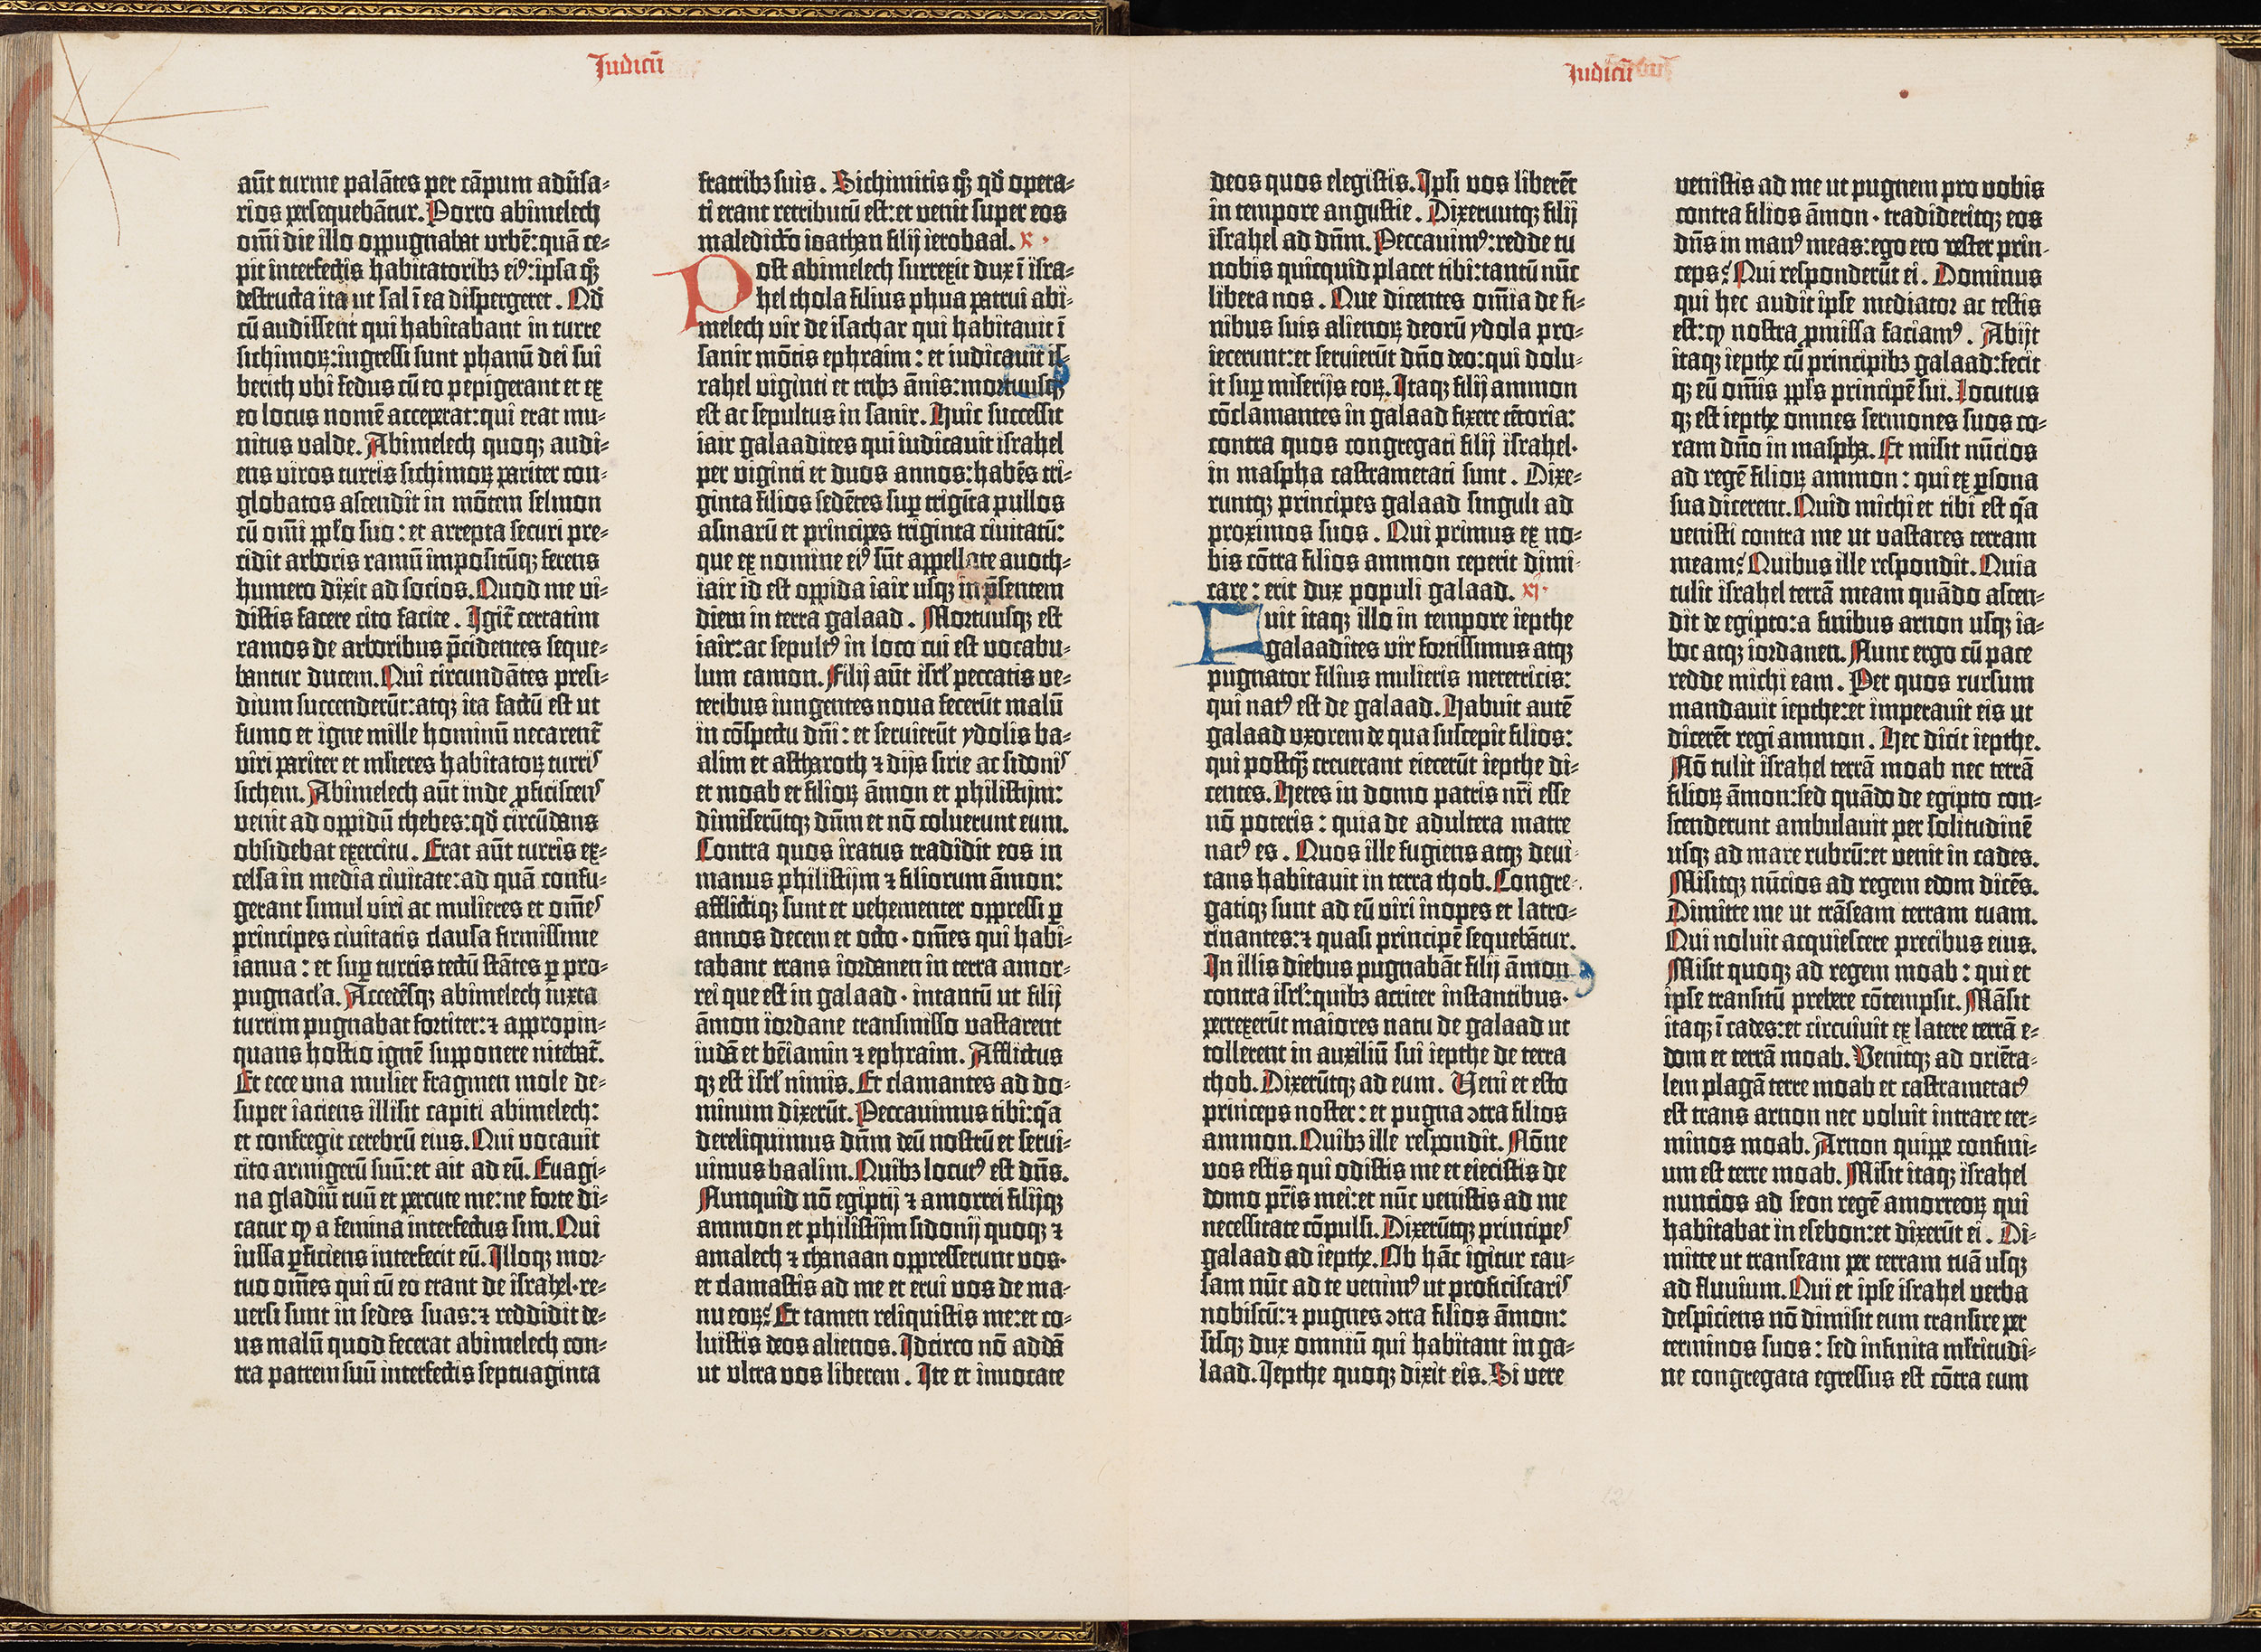 Iudicū
aūt turme palātes per cāpum adūsa-
rios psequebātur. Porro abimelech
om̄i die illo oppugnabat urbē: quā ce-
pit interfectis habitatoribꝫ eiꝰ: ipsa qꝫ
destructa ita ut sal ī ea dispergeret. Qd̄
cū audissent qui habitabant in turre
sichimoꝝ: ingressi sunt phanū dei sui
berith ubi fedus cū eo pepigerant et ex
eo locus nomē acceperat: qui erat mu-
nitus valde. Abimelech quoqꝫ audi-
ens viros turris sichimoꝝ pariter con-
globatos ascendit in mōtem selmon
cū om̄i pplo suo: et arrepta securi pre-
cidit arboris ramū impositūqꝫ ferens
humero dixit ad socios. Quod me vi-
distis facere cito facite. Igit̄ certatim
ramos de arboribus p̄cidentes seque-
bantur ducem. Qui circundātes presi-
dium succenderūt: atqꝫ ita factū est ut
fumo et igne mille hominū necarent̄
viri pariter et mlieres habitatoꝝ turris
sichem. Abimelech aūt inde ꝓficiscens
venit ad oppidū thebes: qd̄ circūdans
obsidebat exercitu. Erat aūt turris ex-
celsa in media civitate: ad quā confu-
gerant simul viri ac mulieres et om̄es
principes civitatis clausa firmissime
ianua: et sup̱ turris tectū stātes ꝑ pro-
pugnacla. Accedēsqꝫ abimelech iuxta
turrim pugnabat fortiter: ⁊ appropin-
quans hostio ignē supponere nitebat̄.
Et ecce una mulier fragmen mole de-
super iaciens illisit capiti abimelech:
et confregit cerebrū eius. Qui vocavit
cito armigerū suū: et ait ad eū. Evagi-
na gladiū tuū et percute me: ne forte di-
catur ꝙ a femina interfectus sim. Qui
iussa ꝑficiens interfecit eū. Illoqꝫ mor-
tuo om̄es qui cū eo erant de israhel· re-
versi sunt in sedes suas: ⁊ reddidit de-
us malū quod fecerat abimelech con-
tra patrem suū interfectis septuaginta
fratribꝫ suis. Sichimitis qꝫ qd̄ opera-
ti erant retributū est: et venit super eos
maledictō ioathan filij ierobaal. x·
Post abimelech surrexit dux ī isra-
hel thola filius phua patrui abi-
melech vir de isachar qui habitavit ī
sanir mōtis ephraim: et iudicavit is-
rahel viginti et tribꝫ ānis: mortuusqꝫ
est ac sepultus in sanir. Huic successit
iair galaadites qui iudicavit israhel
per viginti et duos annos: habēs tri-
ginta filios sedētes sup̱ trigīta pullos
asinarū et principes triginta civitatū:
que ex nomine eiꝰ sūt appellate avoth-
iair id est oppida iair usqꝫ in p̄sentem
diem in terra galaad. Mortuusqꝫ est
iair: ac sepultꝰ in loco cui est vocabu-
lum camon. Filij aūt isrl̄ peccatis ve-
teribus iungentes nova fecerūt malū
in cōspectu dn̄i: et servierūt ydolis ba-
alim et astharoth ⁊ dijs sirie ac sidonis
et moab et filioꝝ āmon et philistijm:
dimiserūtqꝫ dn̄m et nō coluerunt eum.
Contra quos iratus tradidit eos in
manus philistijm ⁊ filiorum āmon:
afflictiqꝫ sunt et vehementer oppressi ꝑ
annos decem et octo· om̄es qui habi-
tabant trans iordanen in terra amor-
rei que est in galaad· intantū ut filij
āmon iordane transmisso vastarent
iudā et bēiamin ⁊ ephraim. Afflictus
qꝫ est isrl̄ nimis. Et clamantes ad do-
minum dixerūt. Peccavimus tibi: q̄a
dereliquimus dn̄m deū nostrū et servi-
vimus baalim. Quibꝫ locutꝰ est dn̄s.
Nunquid nō egiptij ⁊ amorrei filijqꝫ
ammon et philistijm sidonij quoqꝫ ⁊
amalech ⁊ chanaan oppresserunt vos·
et clamastis ad me et erui vos de ma-
nu eoꝝ? Et tamen reliquistis me: et co-
luistis deos alienos. Idcirco nō addā
ut ultra vos liberem. Ite et invocate
Iudicū
deos quos elegistis. Ipsi vos liberēt
in tempore angustie. Dixeruntqꝫ filij
israhel ad dn̄m. Peccavimꝰ: redde tu
nobis quicquid placet tibi: tantū nūc
libera nos. Que dicentes om̄ia de fi-
nibus suis alienoꝝ deorū ydola pro-
iecerunt: et servierūt dn̄o deo: qui dolu-
it sup̱ miserijs eoꝝ. Itaqꝫ filij ammon
cōclamantes in galaad fixere tētoria:
contra quos congregati filij israhel·
in maspha castrametati sunt. Dixe-
runtqꝫ principes galaad singuli ad
proximos suos. Qui primus ex no-
bis cōtra filios ammon ceperit dimi-
care: erit dux populi galaad. xj·
Fuit itaqꝫ illo in tempore iepthe
galaadites vir fortissimus atqꝫ
pugnator filius mulieris meretricis:
qui natꝰ est de galaad. Habuit autē
galaad uxorem de qua suscepit filios:
qui postq̄ꝫ creverant eiecerūt iepthe di-
centes. Heres in domo patris nr̄i esse
nō poteris: quia de adultera matre
natꝰ es. Quos ille fugiens atqꝫ devi-
tans habitavit in terra thob. Congre-
gatiqꝫ sunt ad eū viri inopes et latro-
cinantes: ⁊ quasi principē sequebātur.
In illis diebus pugnabāt filij āmon
contra isrl̄: quibꝫ acriter instantibus·
perrexerūt maiores natu de galaad ut
tollerent in auxiliū sui iepthe de terra
thob. Dixerūtqꝫ ad eum. Veni et esto
princeps noster: et pugna ↄtra filios
ammon. Quibꝫ ille respondit. Nōne
vos estis qui odistis me et eiecistis de
domo pr̄is mei: et nūc venistis ad me
necessitate cōpulsi. Dixerūtqꝫ principes
galaad ad iepthe. Ob hāc igitur cau-
sam nūc ad te venimꝰ ut proficiscaris
nobiscū: ⁊ pugnes ↄtra filios āmon:
sisqꝫ dux omniū qui habitant in ga-
laad. Iepthe quoqꝫ dixit eis. Si vere
venistis ad me ut pugnem pro vobis
contra filios āmon· tradideritqꝫ eos
dn̄s in manꝰ meas: ego ero vester prin-
ceps? Qui responderūt ei. Dominus
qui hec audit ipse mediator ac testis
est: ꝙ nostra ꝓmissa faciamꝰ. Abijt
itaqꝫ iepthe cū principibꝫ galaad: fecit
qꝫ eū om̄is ppl̄s principē sui. Locutus
qꝫ est iepthe omnes sermones suos co-
ram dn̄o in maspha. Et misit nūcios
ad regē filioꝝ ammon: qui ex ꝑsona
sua dicerent. Quid michi et tibi est q̄a
venisti contra me ut vastares terram
meam? Quibus ille respondit. Quia
tulit israhel terrā meam quādo ascen-
dit de egipto: a finibus arnon usqꝫ ia-
boc atqꝫ iordanen. Nunc ergo cū pace
redde michi eam. Per quos rursum
mandavit iepthe: et imperavit eis ut
dicerēt regi ammon. Hec dicit iepthe.
Nō tulit israhel terrā moab nec terrā
filioꝝ āmon: sed quādo de egipto con-
scenderunt ambulavit per solitudinē
usqꝫ ad mare rubrū: et venit in cades.
Misitqꝫ nūcios ad regem edom dicēs.
Dimitte me ut trāseam terram tuam.
Qui noluit acquiescere precibus eius.
Misit quoqꝫ ad regem moab: qui et
ipse transitū prebere cōtempsit. Māsit
itaqꝫ ī cades: et circuivit ex latere terrā e-
dom et terrā moab. Venitqꝫ ad oriēta-
lem plagā terre moab et castrametatꝰ
est trans arnon nec voluit intrare ter-
minos moab. Arnon quippe confini-
um est terre moab. Misit itaqꝫ israhel
nuncios ad seon regē amorreoꝝ qui
habitabat in esebon: et dixerūt ei. Di-
mitte ut transeam per terram tuā usqꝫ
ad fluvium. Qui et ipse israhel verba
despiciens nō dimisit eum transire per
terminos suos: sed infinita ml̄titudi-
ne congregata egressus est cōtra eum